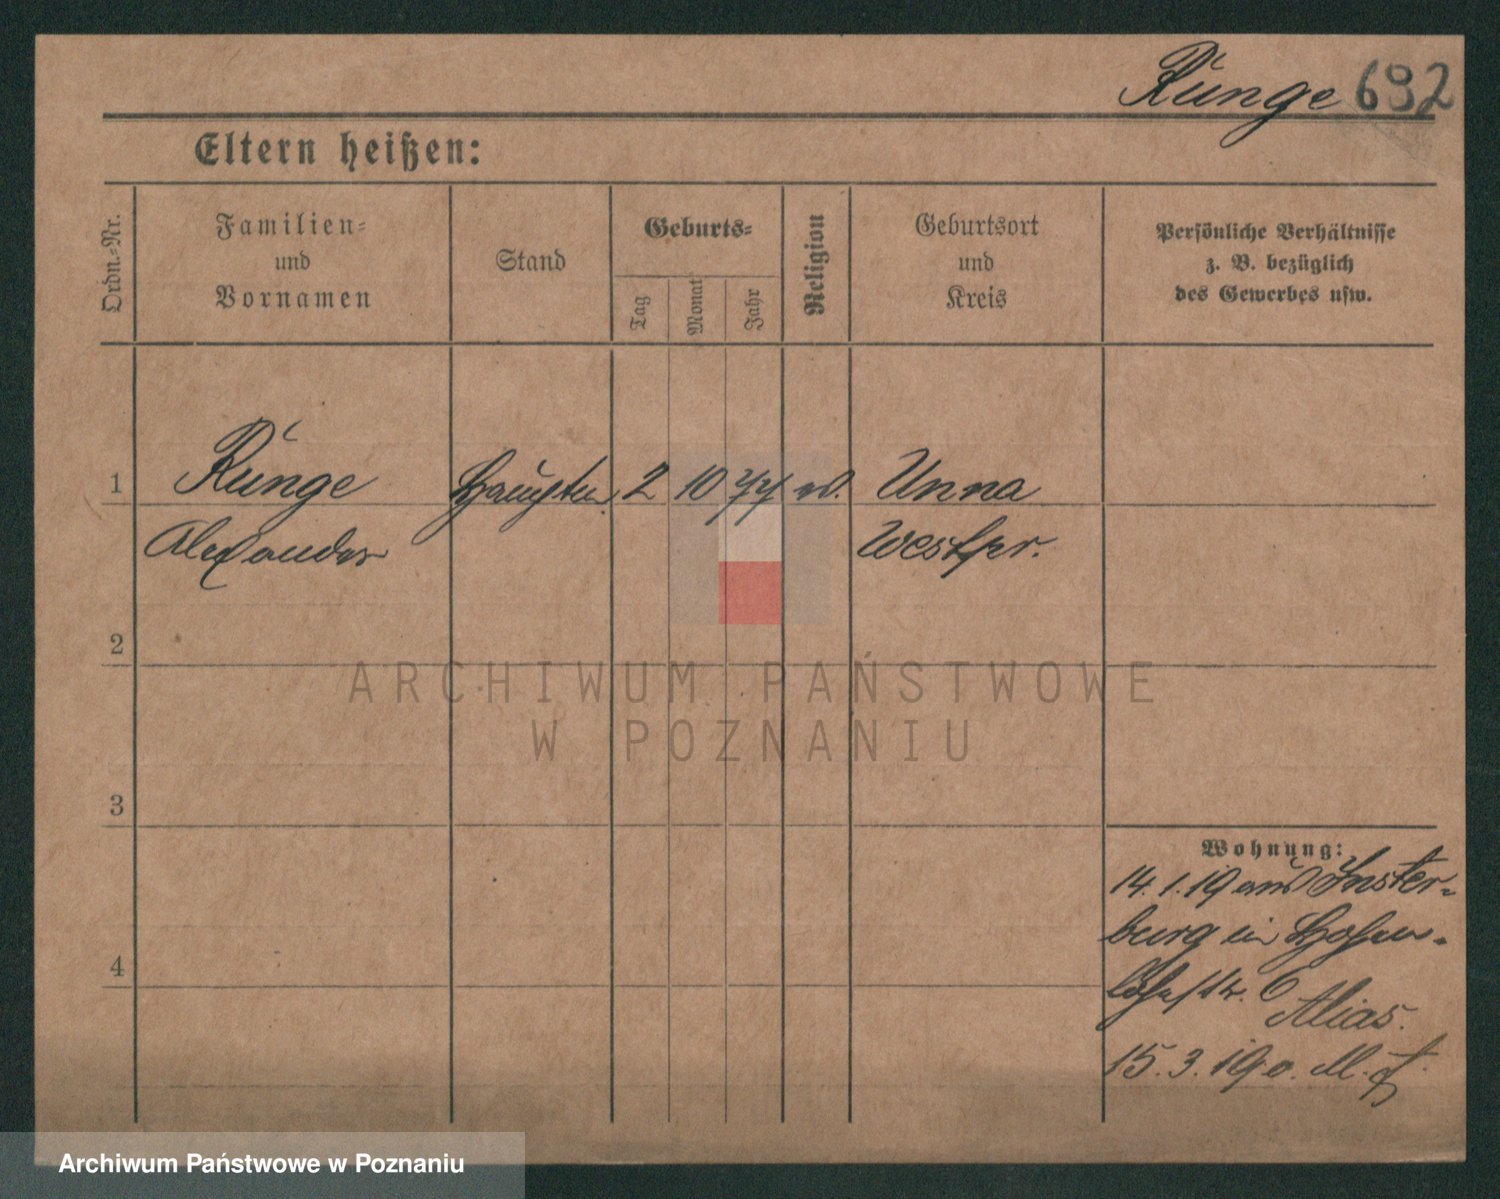 Runge 692
Eltern heißen:
Ordn.-Nr.
Familien-
und
Vornamen
Stand
Geburts-
Tag
Monat
Jahr
Religion
Geburtsort
und
Kreis
Persönliche Verhältnisse
z. B. bezüglich
des Gewerbes usw.
1 Runge Hauptm. 2 10 77 Unna
Alexander Westfr.
2
3
4
ARCHIWUM PAŃSTWOWE
W POZNANIU
Wohnung:
14.1.19 aus Inster-
burg in Hohen-
lohestr. 6
Alias.
15.3.19 o. M. f.
Archiwum Państwowe w Poznaniu